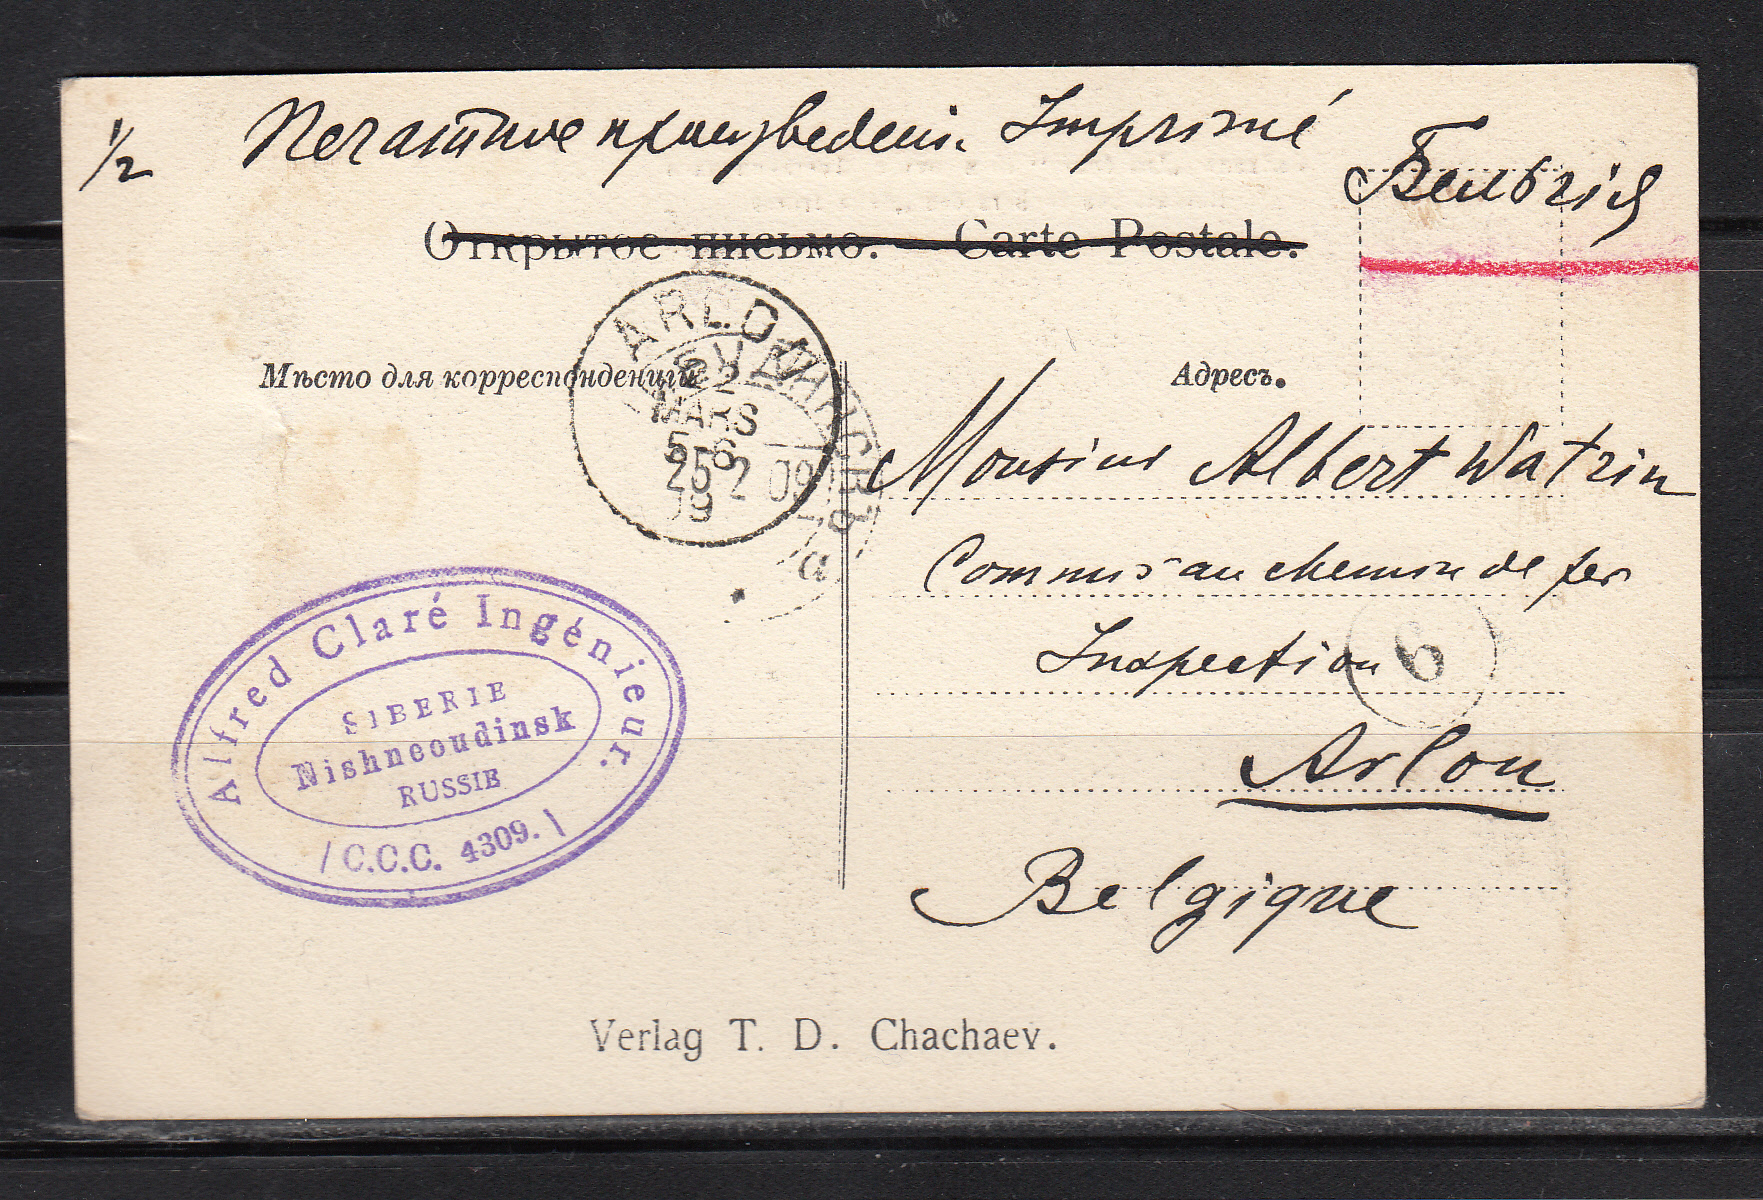 1/2
Печатное произведенi. Imprimé
Бельгiя
Открытое письмо. — Carte Postale.
Мѣсто для корреспонденцiи
Адресъ.
ARLON
2
MARS
5-6
09
25 2 09
а
Monsieur Albert Watrin
Commis au chemin de fer
Inspection
6
Arlon
Belgique
Alfred Claré Ingénieur.
SIBERIE
Nishneoudinsk
RUSSIE
/ C.C.C. 4309. \
Verlag T. D. Chachaev.